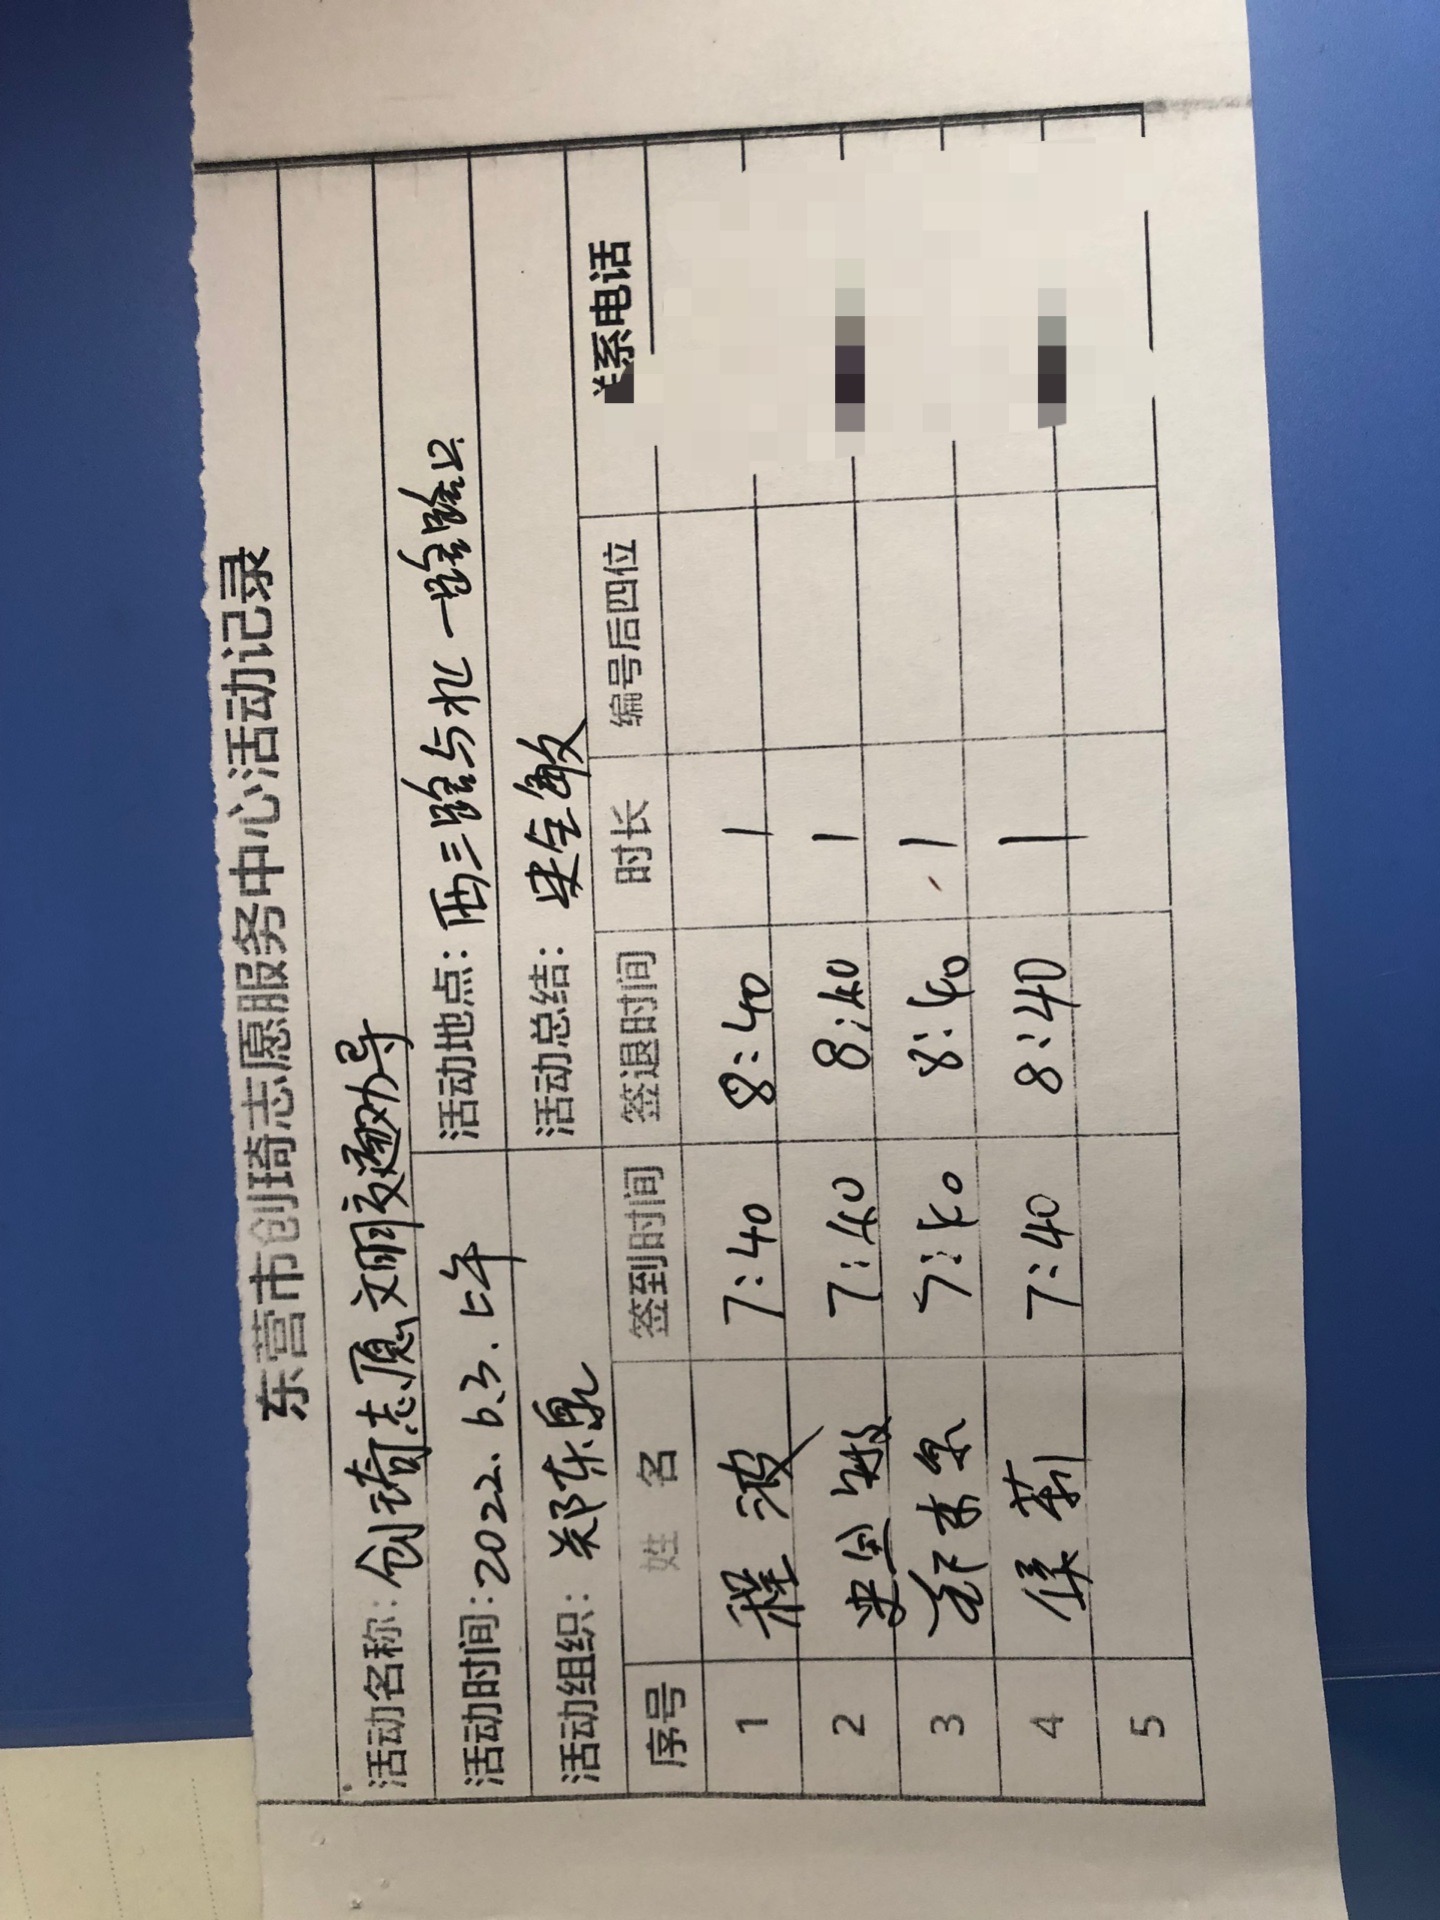 东营市创琦志愿服务中心活动记录
活动名称: 创琦志愿文明交通劝导
活动时间: 2022.6.3.上午 活动地点: 西三路与北一路路口
活动组织: 郑东泉 活动总结: 全敏
序号 姓 名 签到时间 签退时间 时长 编号后四位 系电话
1 程波 7:40 8:40 1
2 7:40 8:40 1
3 7:40 8:40 1
4 侯莉 7:40 8:40 1
5